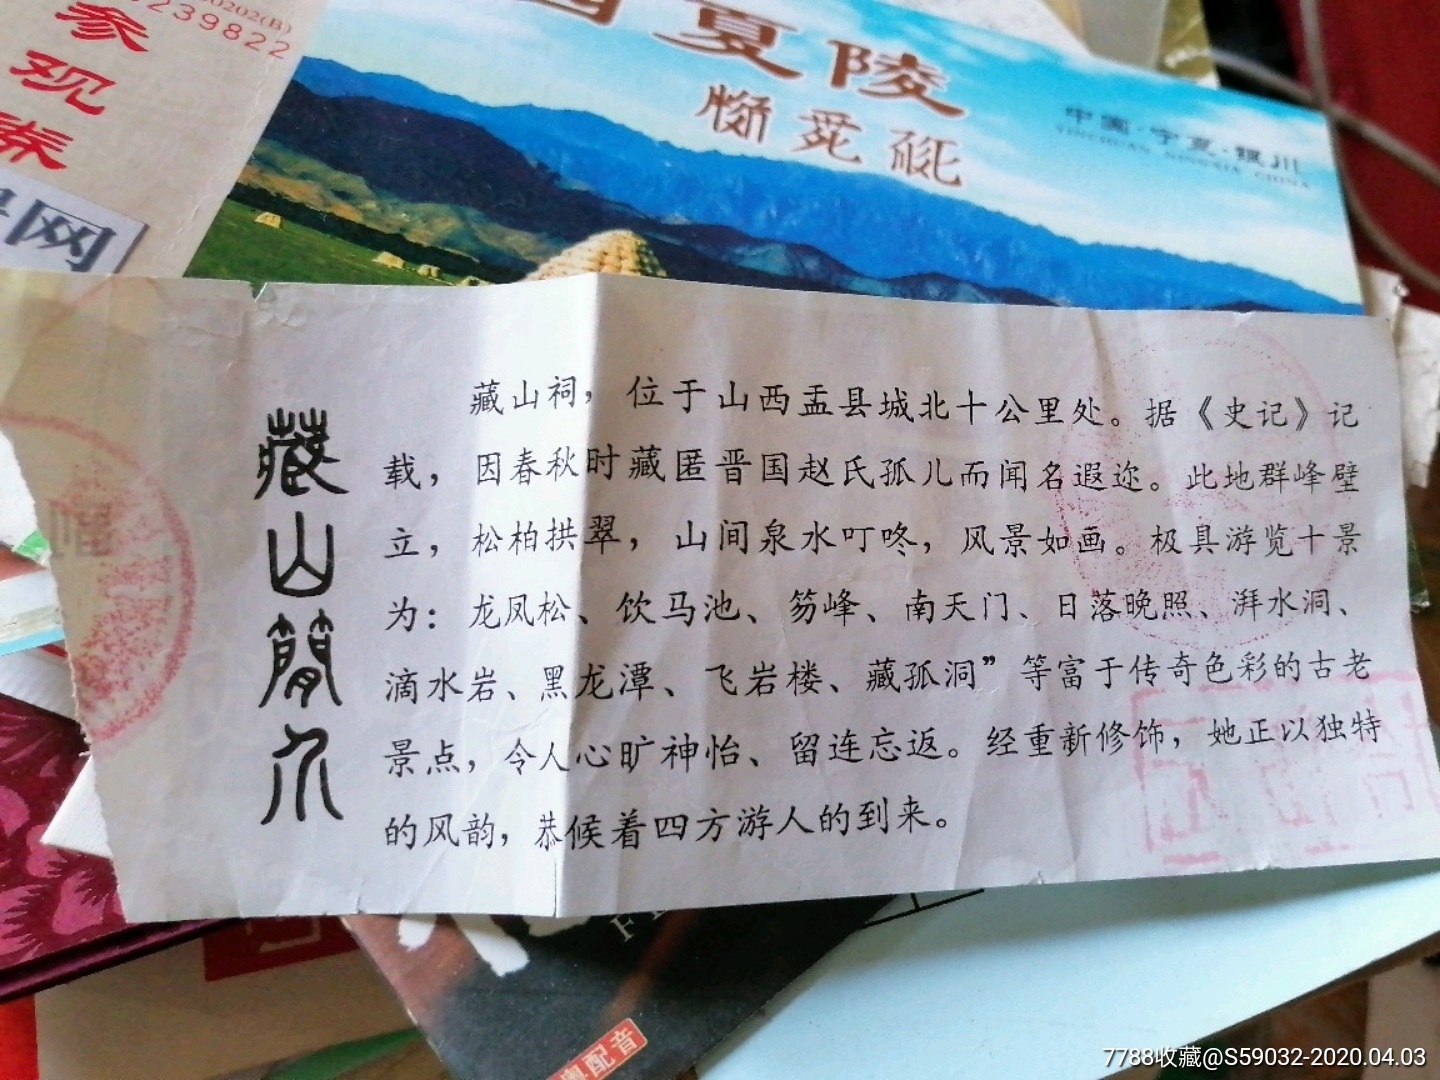 0202(B)
239822
参观券
网
西夏陵
中国·宁夏·银川
YINCHUAN NINGXIA CHINA
藏山简介
藏山祠，位于山西盂县城北十公里处。据《史记》记
载，因春秋时藏匿晋国赵氏孤儿而闻名遐迩。此地群峰壁
立，松柏拱翠，山间泉水叮咚，风景如画。极具游览十景
为：龙凤松、饮马池、笏峰、南天门、日落晚照、湃水洞、
滴水岩、黑龙潭、飞岩楼、藏孤洞”等富于传奇色彩的古老
景点，令人心旷神怡、留连忘返。经重新修饰，她正以独特
的风韵，恭候着四方游人的到来。
配音
7788收藏@S59032-2020.04.03